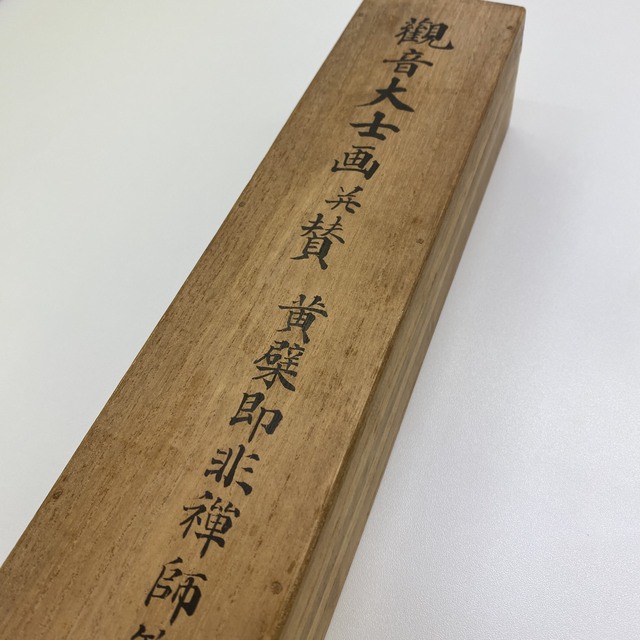 觀音大士画並賛 黄檗即非禅師